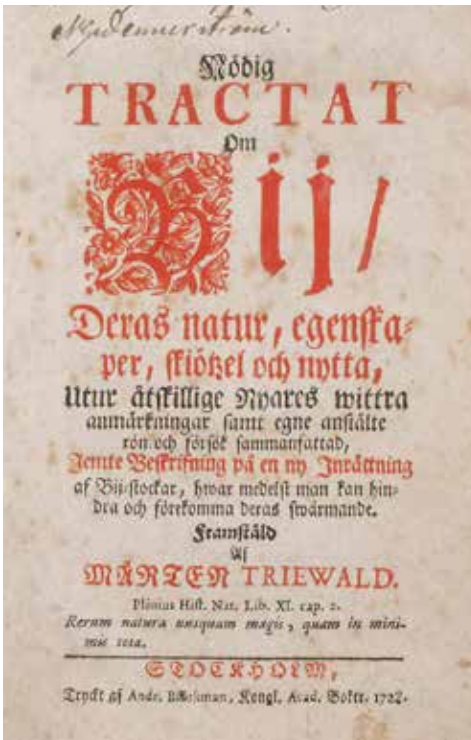 Nödig
TRACTAT
Om
Bij/
Deras natur, egenska-
per, skiötzel och nytta,
Utur åtskillige Nyares wittra
anmärkningar samt egne anstälte
rön och försök sammanfattad,
Jemte Beskrifning på en ny Inrättning
af Bij-stockar, hwar medelst man kan hin-
dra och förekomma deras swärmande.
Framstäld
Af
MÅRTEN TRIEWALD.
Plinius Hist. Nat. Lib. XI. cap. 2.
Rerum natura nusquam magis, quam in mini-
mis tota.
STOCKHOLM,
Tryckt af And. Kongl. Acad. Boktr. 1728.